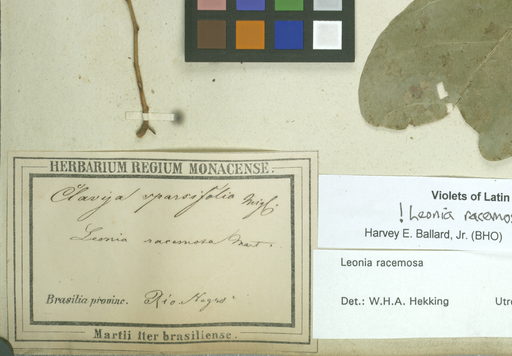 HERBARIUM REGIUM MONACENSE.
Clavija sparsifolia Miq.
Leonia racemosa Mart.
Brasilia provinc. Rio Negro
Martii Iter brasiliense.
Violets of Latin
! Leonia racemos
Harvey E. Ballard, Jr. (BHO)
Leonia racemosa
Det.: W.H.A. Hekking Utre